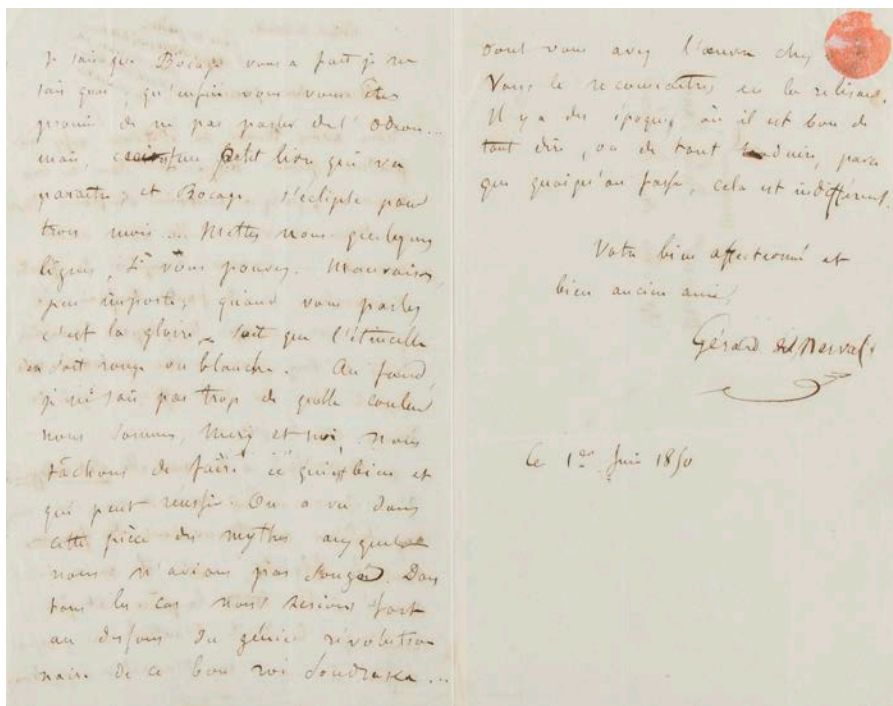 Je sais que Bocage vous a fait je ne
sais quoi, qu'enfin vous vous êtes
promis de ne pas parler de l'Odéon...
mais, un petit livre qui va
paraître, et Bocage s'éclipse pour
trois mois... Mettez nous quelques
lignes, si vous pouvez. Mauvaises,
peu importe, quand vous parlez
c'est la gloire, soit que l'étincelle
en soit rouge ou blanche. Au fond,
je ne sais pas trop de quelle couleur
nous sommes, Méry et moi, nous
tâchons de faire ce qui est bien et
qui peut réussir. On a vu dans
cette pièce des mythes auxquels
nous n'avions pas songé. Dans
tous les cas nous serions fort
au dessous du génie révolution
naire de ce bon roi Soudraka...
dont vous avez l'œuvre chez
Vous le reconnaîtrez en la relisant.
Il y a des époques où il est bon de
tout dire, ou de tout traduire, parce
que quoiqu'on fasse, cela est indifférent.
Votre bien affectionné et
bien ancien ami,
Gérard de Nerval
Ce 1er Juin 1850